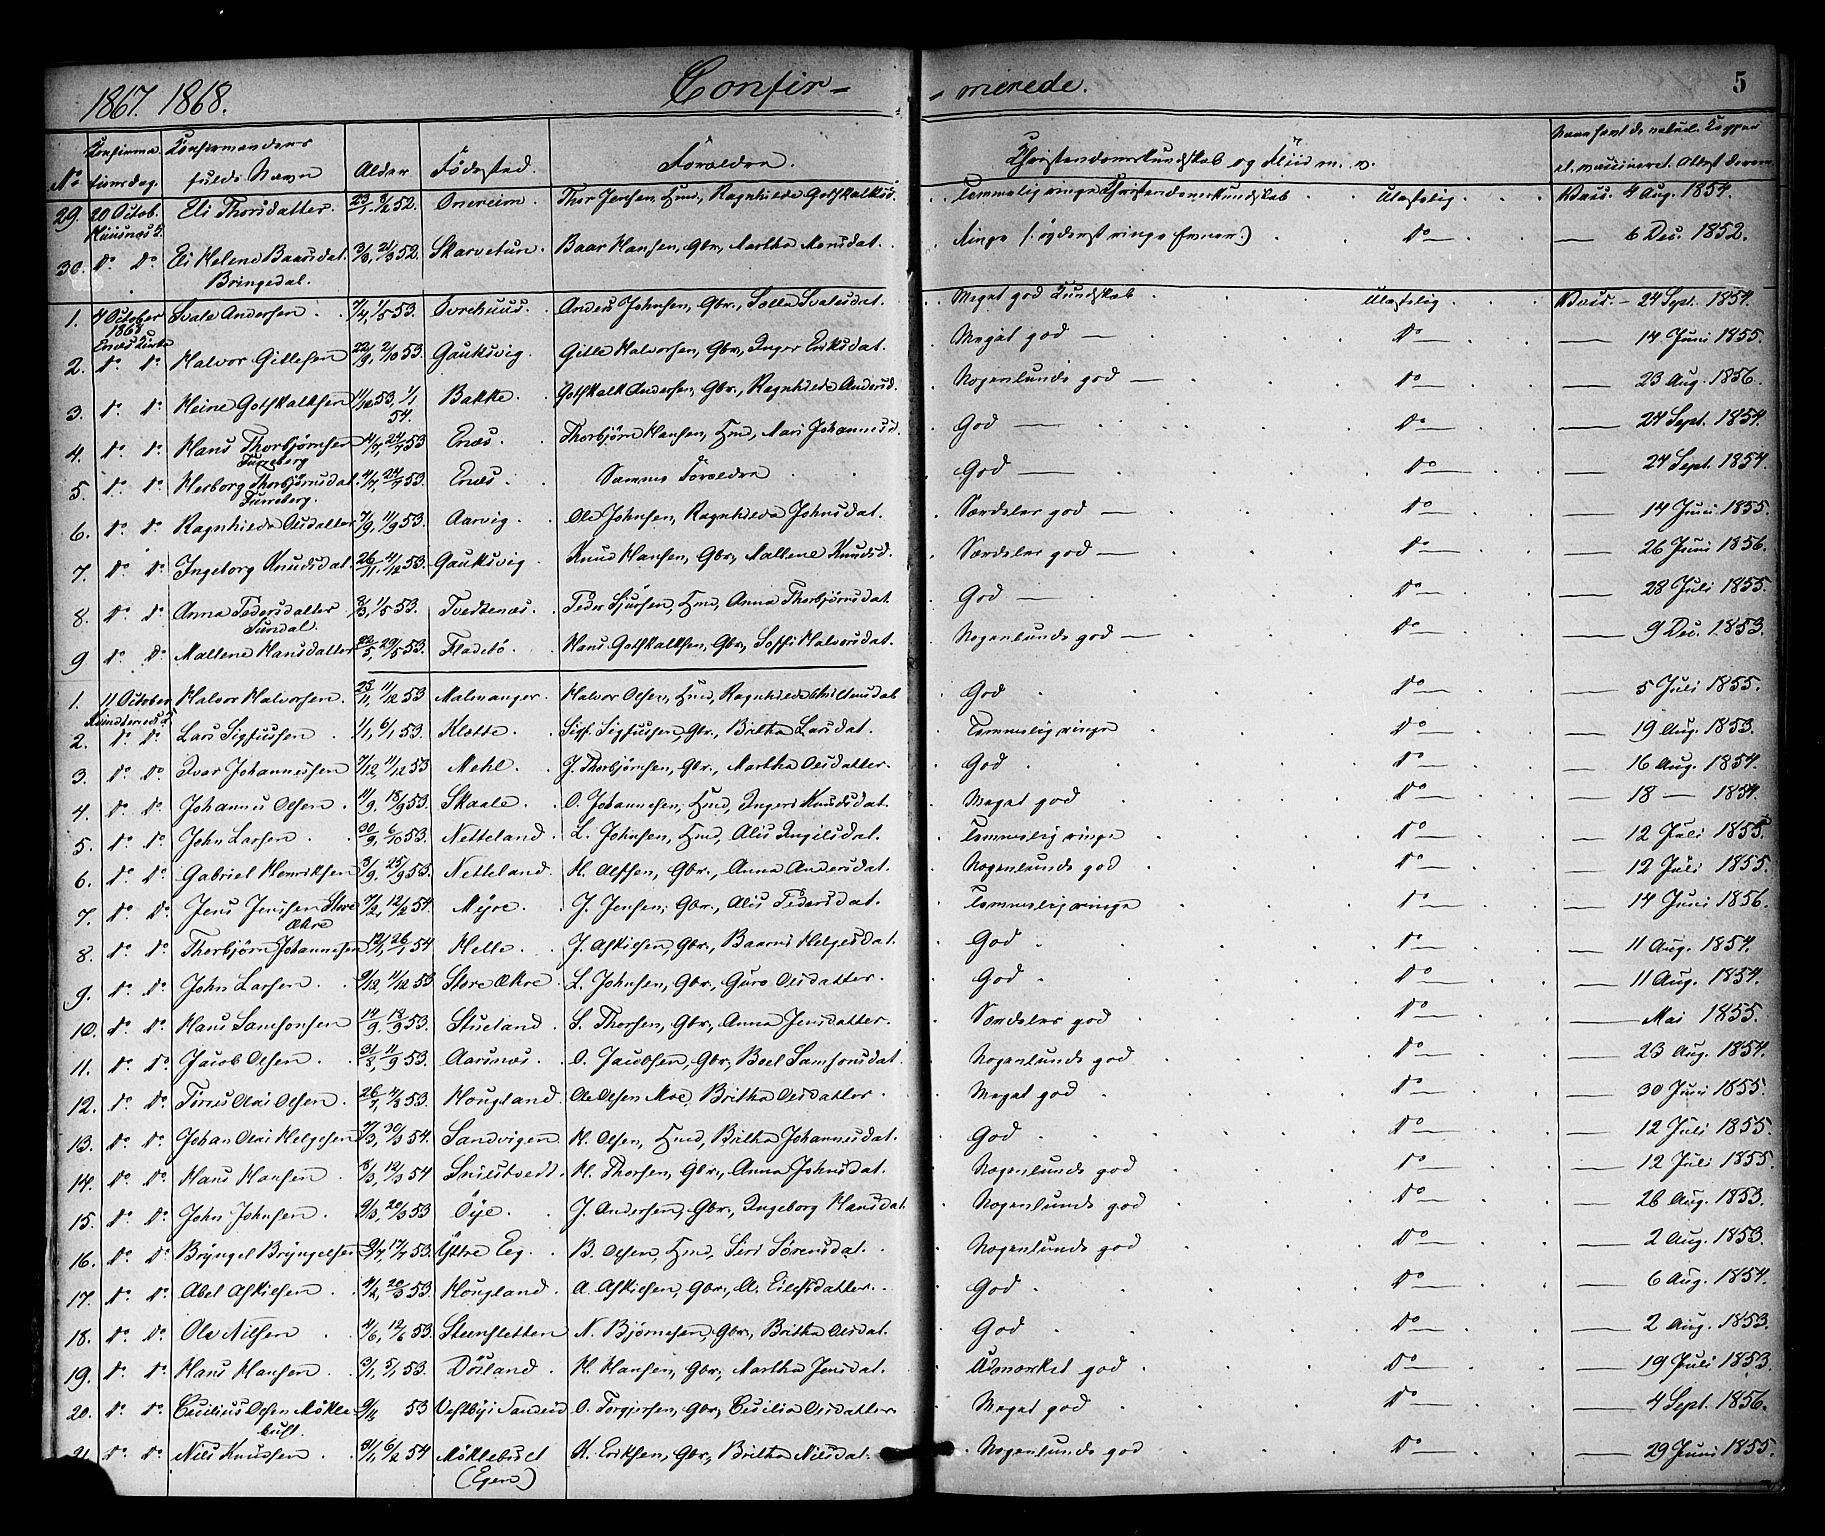 1867. 1868. Confir- -merede. 5
No Konfirma- tionsdag. Konfirmandens fulde Navn Alder Födested. Forældre. Christendomskundskab og Fliid m. v. Naar samt de naturl. Kopper el. vaccineret. Attest derom.
29. 20 Octob. Huusnæs K. Eli Thorsdatter. 52. Onereim Thor Jensen, Hmd, Ragnhilde Gotskalksd. Temmelig ringe Christendomskundskab Ulastelig Vacc. 4 Aug. 1854.
30. do do Eli Helene Baarsdat. Bringedal. 52 Skarveture Baar Hansen, Gbr, Martha Monsdat. Ringe do 6 Dec. 1852.
1. 4 October 1868 Enæs Kirke Svale Andersen 7/4, 1/5 53. Ovrehuus Anders Johnsen, Gbr., Salla Svalesdat. Meget god Kundskab Ulastelig Vacc. 24 Sept. 1854.
2. do do Halvor Gitlesen 22/9, 2/10 53. Gauksvig. Gitle Halvorsen, Gbr, Inger Eriksdat. Meget god do 14 Juni 1855.
3. do do Heine Gotskalksen 11/12 53, 1/1 54. Bakke. Gotskalk Andersen, Gbr., Ragnhilde Andersd. Nogenlunde god do 23 Aug. 1856.
4. do do Hans Thorbjørnsen Furreberg 4/7, 24/7 53 Enæs. Thorbjørn Hansen, Hmd, Mari Johannesd. God do 24 Sept. 1854.
5. do do Herborg Thorbjörnsdat. Furreberg. 4/7, 24/7 53. Enæs. Samme Forældre God do 24 Sept. 1854.
6. do do Ragnhilde Olsdatter 7/9, 11/9 53. Aarvig. Ole Johnsen, Ragnhilde Johnsdat. Særdeles god do 14 Juni 1855.
7. do do Ingeborg Knudsdat. 26/11, 4/12 53. Gauksvig Knud Hansen, Gbr, Mallene Knudsd. Særdeles god do 26 Juni 1856.
8. do do Anna Pedersdatter Sundal. 3/3, 1/5 53. Tvedtenæs. Peder Sjursen, Hmd, Anna Thorbjörnsdat. God do 28 Juli 1855.
9 do do Mallene Hansdatter 22/5, 29/5 53. Fladetö Hans Gotskalksen, Gbr, Soffi Halvorsdat. Nogenlunde god do 9 Dec. 1853.
1. 11 October Halvor Halvorsen. 23/11, 11/12 53 Malmanger. Halvor Olsen, Hmd, Ragnhilde God do 5 Juli 1855.
2. do do Lars Sigfussen 1/1, 6/1 53. Klotte. Sigf. Sigfussen, Gbr., Britha Larsdat. Temmelig ringe do 19 Aug. 1853.
3. do do Ivar Johannessen 7/12, 11/12 53 Mehl. J. Thorbjörnsen, Gbr., Martha Olsdatter. God do 16 Aug. 1854.
4. do do Johannes Olsen 11/9, 18/9 53. Skaale. O. Johannesen, Hmd, Ingeri Knudsdat. Meget god do 18 — 1854.
5. do do John Larsen 30/9, 6/10 53. Netteland. L. Johnsen, Hmd, Alis Ingilsdat. Temmelig ringe do 12 Juli 1855.
6. do do Gabriel Henriksen 3/9, 25/9 53. Netteland. H. Olsen, Gbr., Anna Andersdat. Nogenlunde god do 12 Juli 1855.
7. do do Jens Jensen Store Økre 7/2, 12/2 54. Myre. J. Jensen, Gbr., Alis Pedersdat. Temmelig ringe do 14 Juni 1856.
8. do do Thorbjörn Johannesen 12/1, 26/1 54 Helle. J. Askilsen, Gbr., Baarni Helgesdat. God do 11 Aug. 1854.
9. do do John Larsen. 9/12, 11/12 53 Store Økre. L. Johnsen, Gbr., Guro Olsdatter. God do 11 Aug. 1854.
10. do do Hans Samsonsen 14/9, 18/9 53. Stueland. S. Thorsen, Gbr., Anna Jensdatter. Særdeles god do Mai 1855.
11. do do Jacob Olsen. 31/8, 11/9 53. Aarsnæs. O. Jacobsen, Gbr, Boel Samsonsdat. Nogenlunde god do 23 Aug. 1854.
12. do do Olai Olsen. 53. Hougland. Ole Olsen Moe, Britha Olsdatter. Meget god do 30 Juni 1855.
13. do do Johan Olai Helgesen 30/3 54. Sandvigen. H. Olsen, Hmd, Britha Johannesdat. God do 12 Juli 1855.
14. do do Hans Hansen 5/3, 12/3 54 Sniltvedt. H. Thorsen, Gbr., Anna Johnsdat. Nogenlunde god do 12 Juli 1855.
15. do do John Johnsen. 9/3, 20/3 53 Öye. J. Andersen, Gbr., Ingeborg Hansdat Nogenlunde god do 26 Aug. 1853.
16. do do Bryngel Bryngelsen 9/7, 17/7 53. Yttre Eeg. B. Olsen, Hmd, Siri Sörensdat. Nogenlunde god do 2 Aug. 1853.
17. do do Abel Askielsen 4/2, 20/3 53. Hougland. A. Askielsen, Gbr., A. Eilefsdatter. God do 6 Aug. 1854.
18. do do Ole Nilsen 4/6, 12/6 53. Steensletten N. Björnesen, Gbr., Britha Olsdat. God do 2 Aug. 1853.
19. do do Hans Hansen. 3/1, 5/1 53. Dösland. H. Hansen, Gbr., Martha Jensdat. Udmerket god do 19 Juli 1853.
20. do do Cecilius Olsen Mökle- bust. 53 O. Torgersen, Gbr., Cecilia Olsdatter Meget god do 4 Sept. 1856.
21 do do Nils Knudsen 3/1, 6/2 54 Möklebust (Egen) K. Eriksen, Gbr., Britha Nilsdat. Nogenlunde god do 29 Juni 1855.